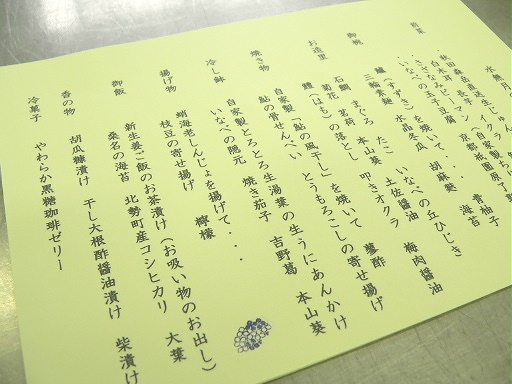 前菜
水無月の
秋田森岳直送生じゅんさい
白木耳みピーマン
さざなみイクラ
いなべの玉子豆腐
京都祇園原了郭
青柚子
海苔
御椀
鱸(すずき)を焼いて・・・
三輪素麺 水晶冬瓜
胡麻麩
いなべの丘ひじき
お造里
石鯛 まぐろ たこ 土佐醤油 梅肉醤油
菊花 茗荷 本山葵 叩きオクラ
鱧(はも)の落とし
蓼酢
焼き物
自家製「鮎の風干し」を焼いて
鮎の骨せんべい とうもろこしの寄せ揚げ
冷し鉢
自家製とろとろ生湯葉の生うにあんかけ
いなべの隠元 焼き茄子 吉野葛 本山葵
揚げ物
蛸海老しんじょを揚げて・・・
枝豆の寄せ揚げ 檸檬
御飯
新生姜ご飯のお茶漬け(お吸い物のお出し)
桑名の海苔 北勢町産コシヒカリ 大葉
香の物
胡瓜糠漬け 干し大根酢醤油漬け 柴漬け
冷菓子
やわらか黒糖珈琲ゼリー